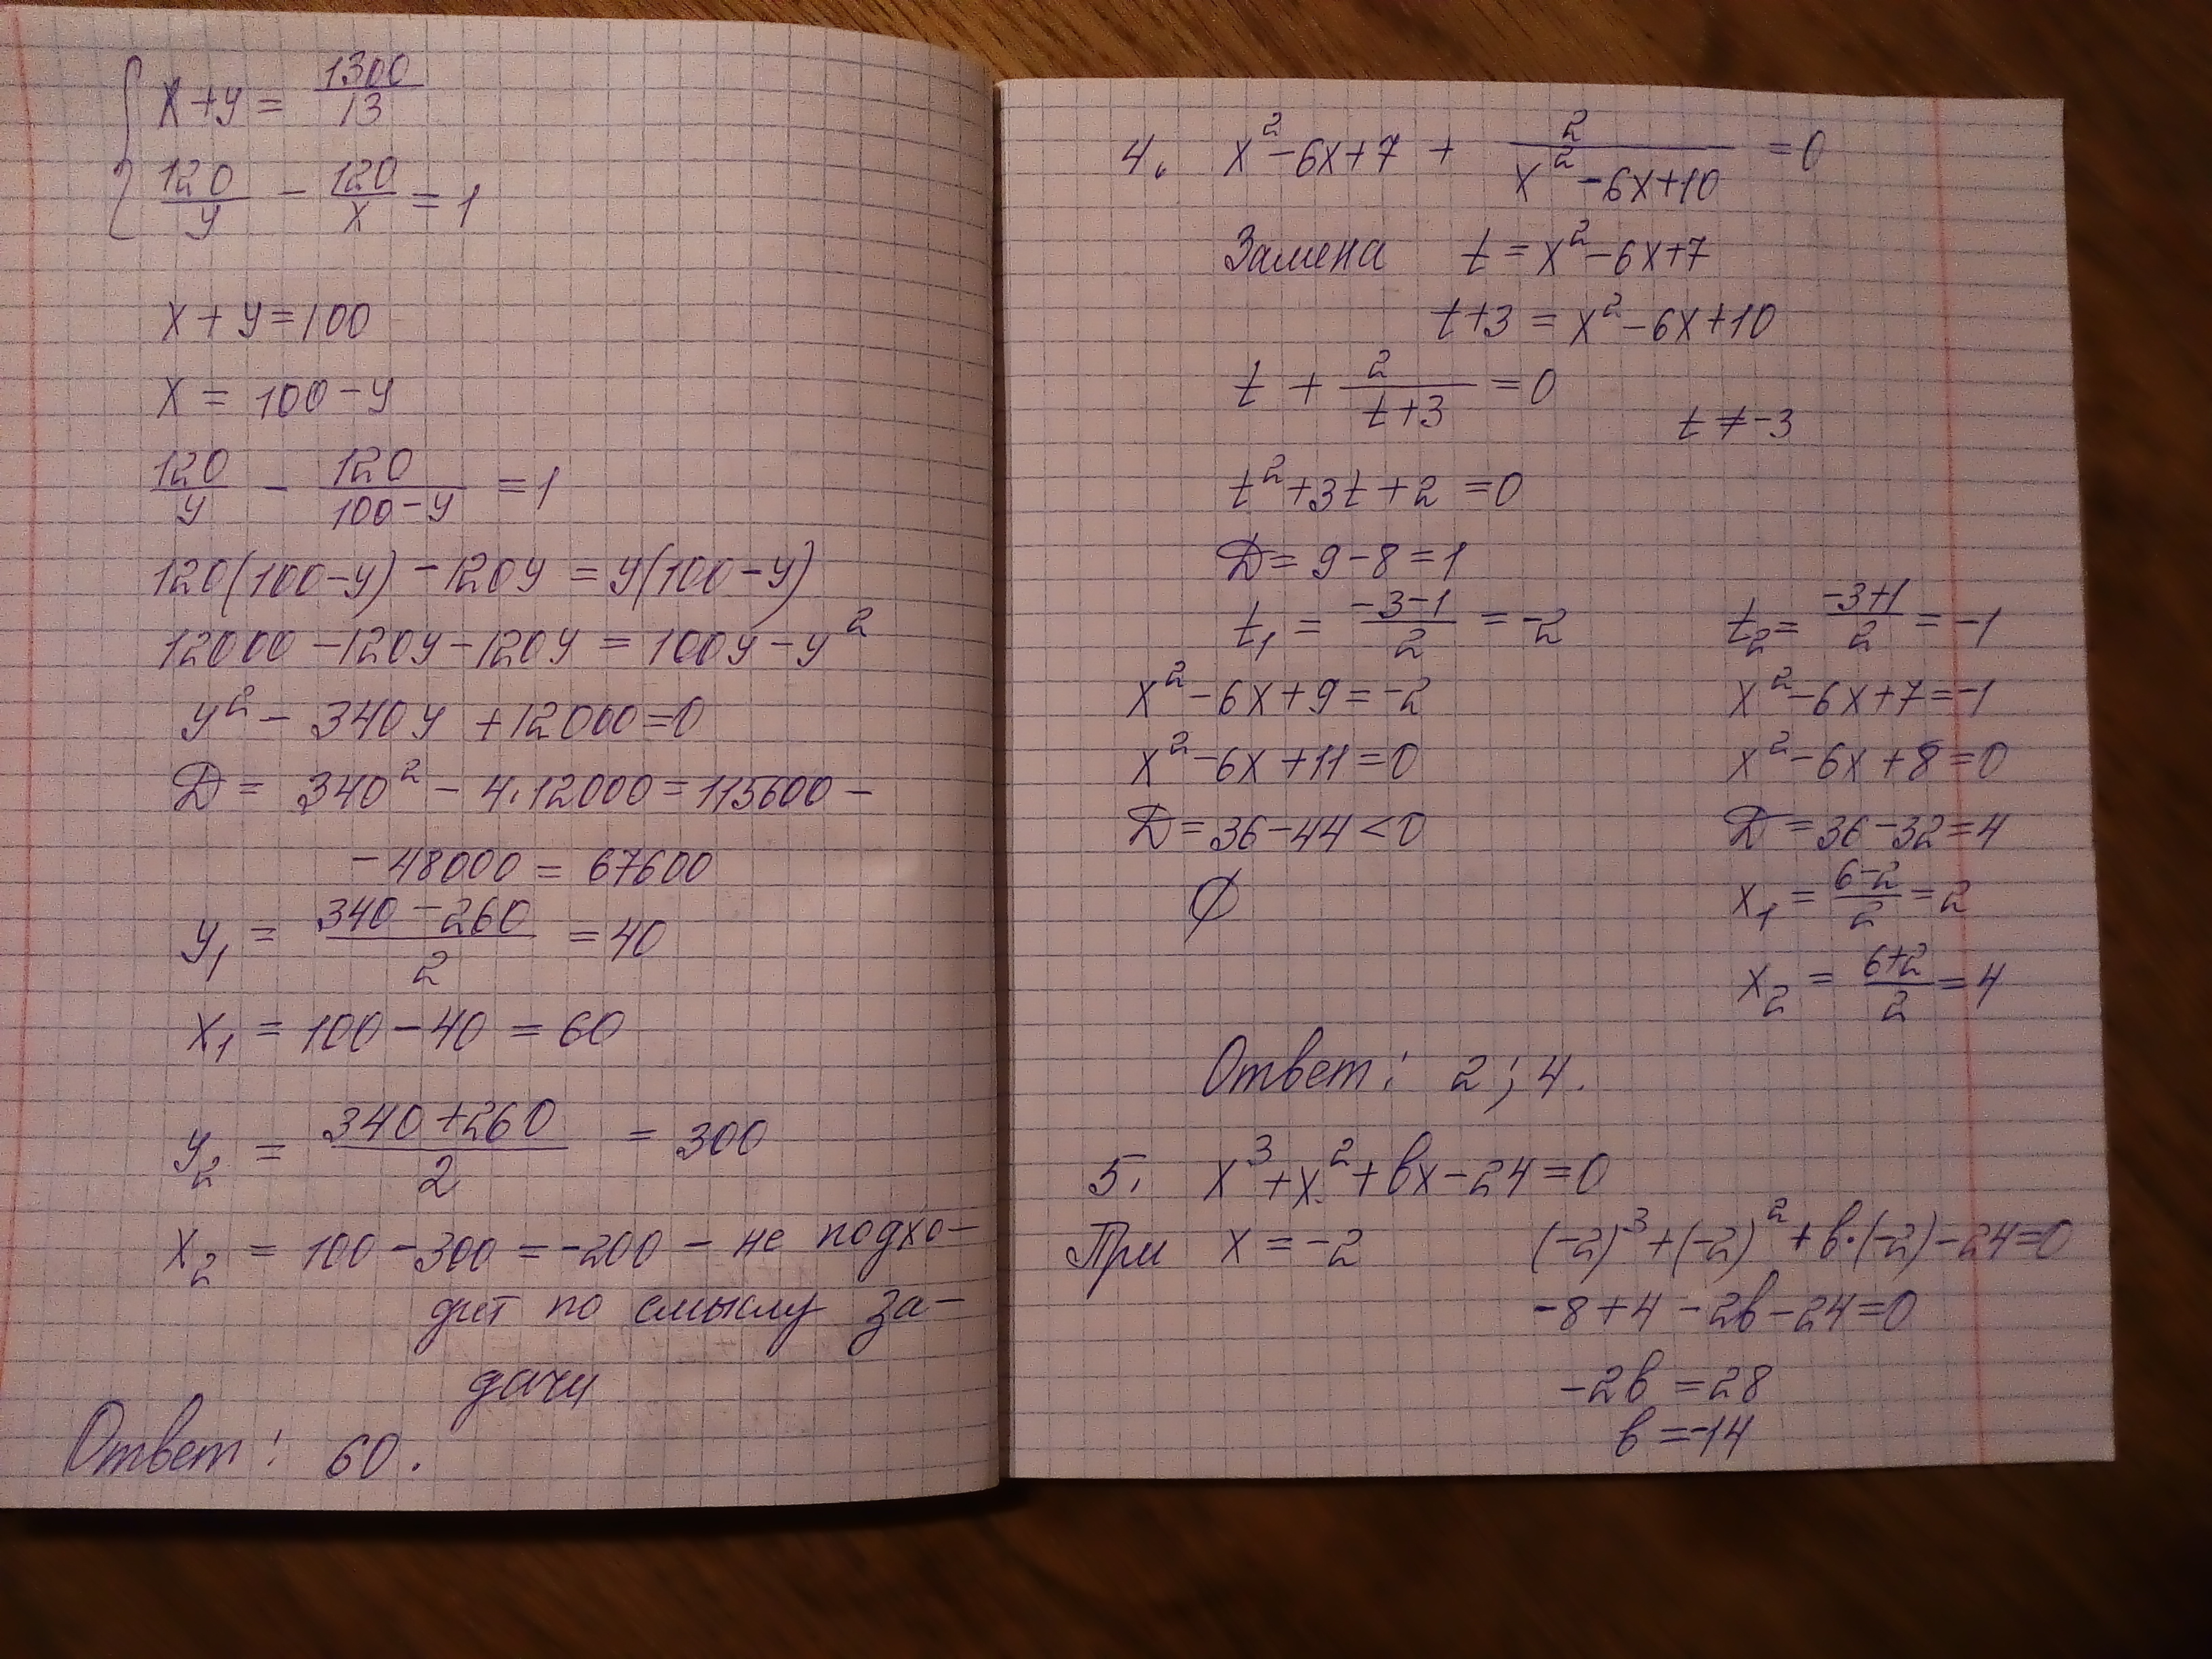 x + y = 1300/13
120/y - 120/x = 1
x + y = 100
x = 100 - y
120/y - 120/(100 - y) = 1
120(100-y) - 120y = y(100-y)
12000 - 120y - 120y = 100y - y²
y² - 340y + 12000 = 0
Д = 340² - 4·12000 = 115600 -
- 48000 = 67600
y₁ = (340 - 260)/2 = 40
x₁ = 100 - 40 = 60
y₂ = (340 + 260)/2 = 300
x₂ = 100 - 300 = -200 - не подхо-
дит по смыслу за-
дачи
Ответ: 60.
4. x² - 6x + 7 + 2/(x² - 6x + 10) = 0
Замена t = x² - 6x + 7
t + 3 = x² - 6x + 10
t + 2/(t + 3) = 0 t ≠ -3
t² + 3t + 2 = 0
Д = 9 - 8 = 1
t₁ = (-3 - 1)/2 = -2 t₂ = (-3 + 1)/2 = -1
x² - 6x + 9 = -2 x² - 6x + 7 = -1
x² - 6x + 11 = 0 x² - 6x + 8 = 0
Д = 36 - 44 < 0 Д = 36 - 32 = 4
∅ x₁ = (6 - 2)/2 = 2
x₂ = (6 + 2)/2 = 4
Ответ: 2; 4.
5. x³ + x² + bx - 24 = 0
При x = -2 (-2)³ + (-2)² + b·(-2) - 24 = 0
-8 + 4 - 2b - 24 = 0
-2b = 28
b = -14